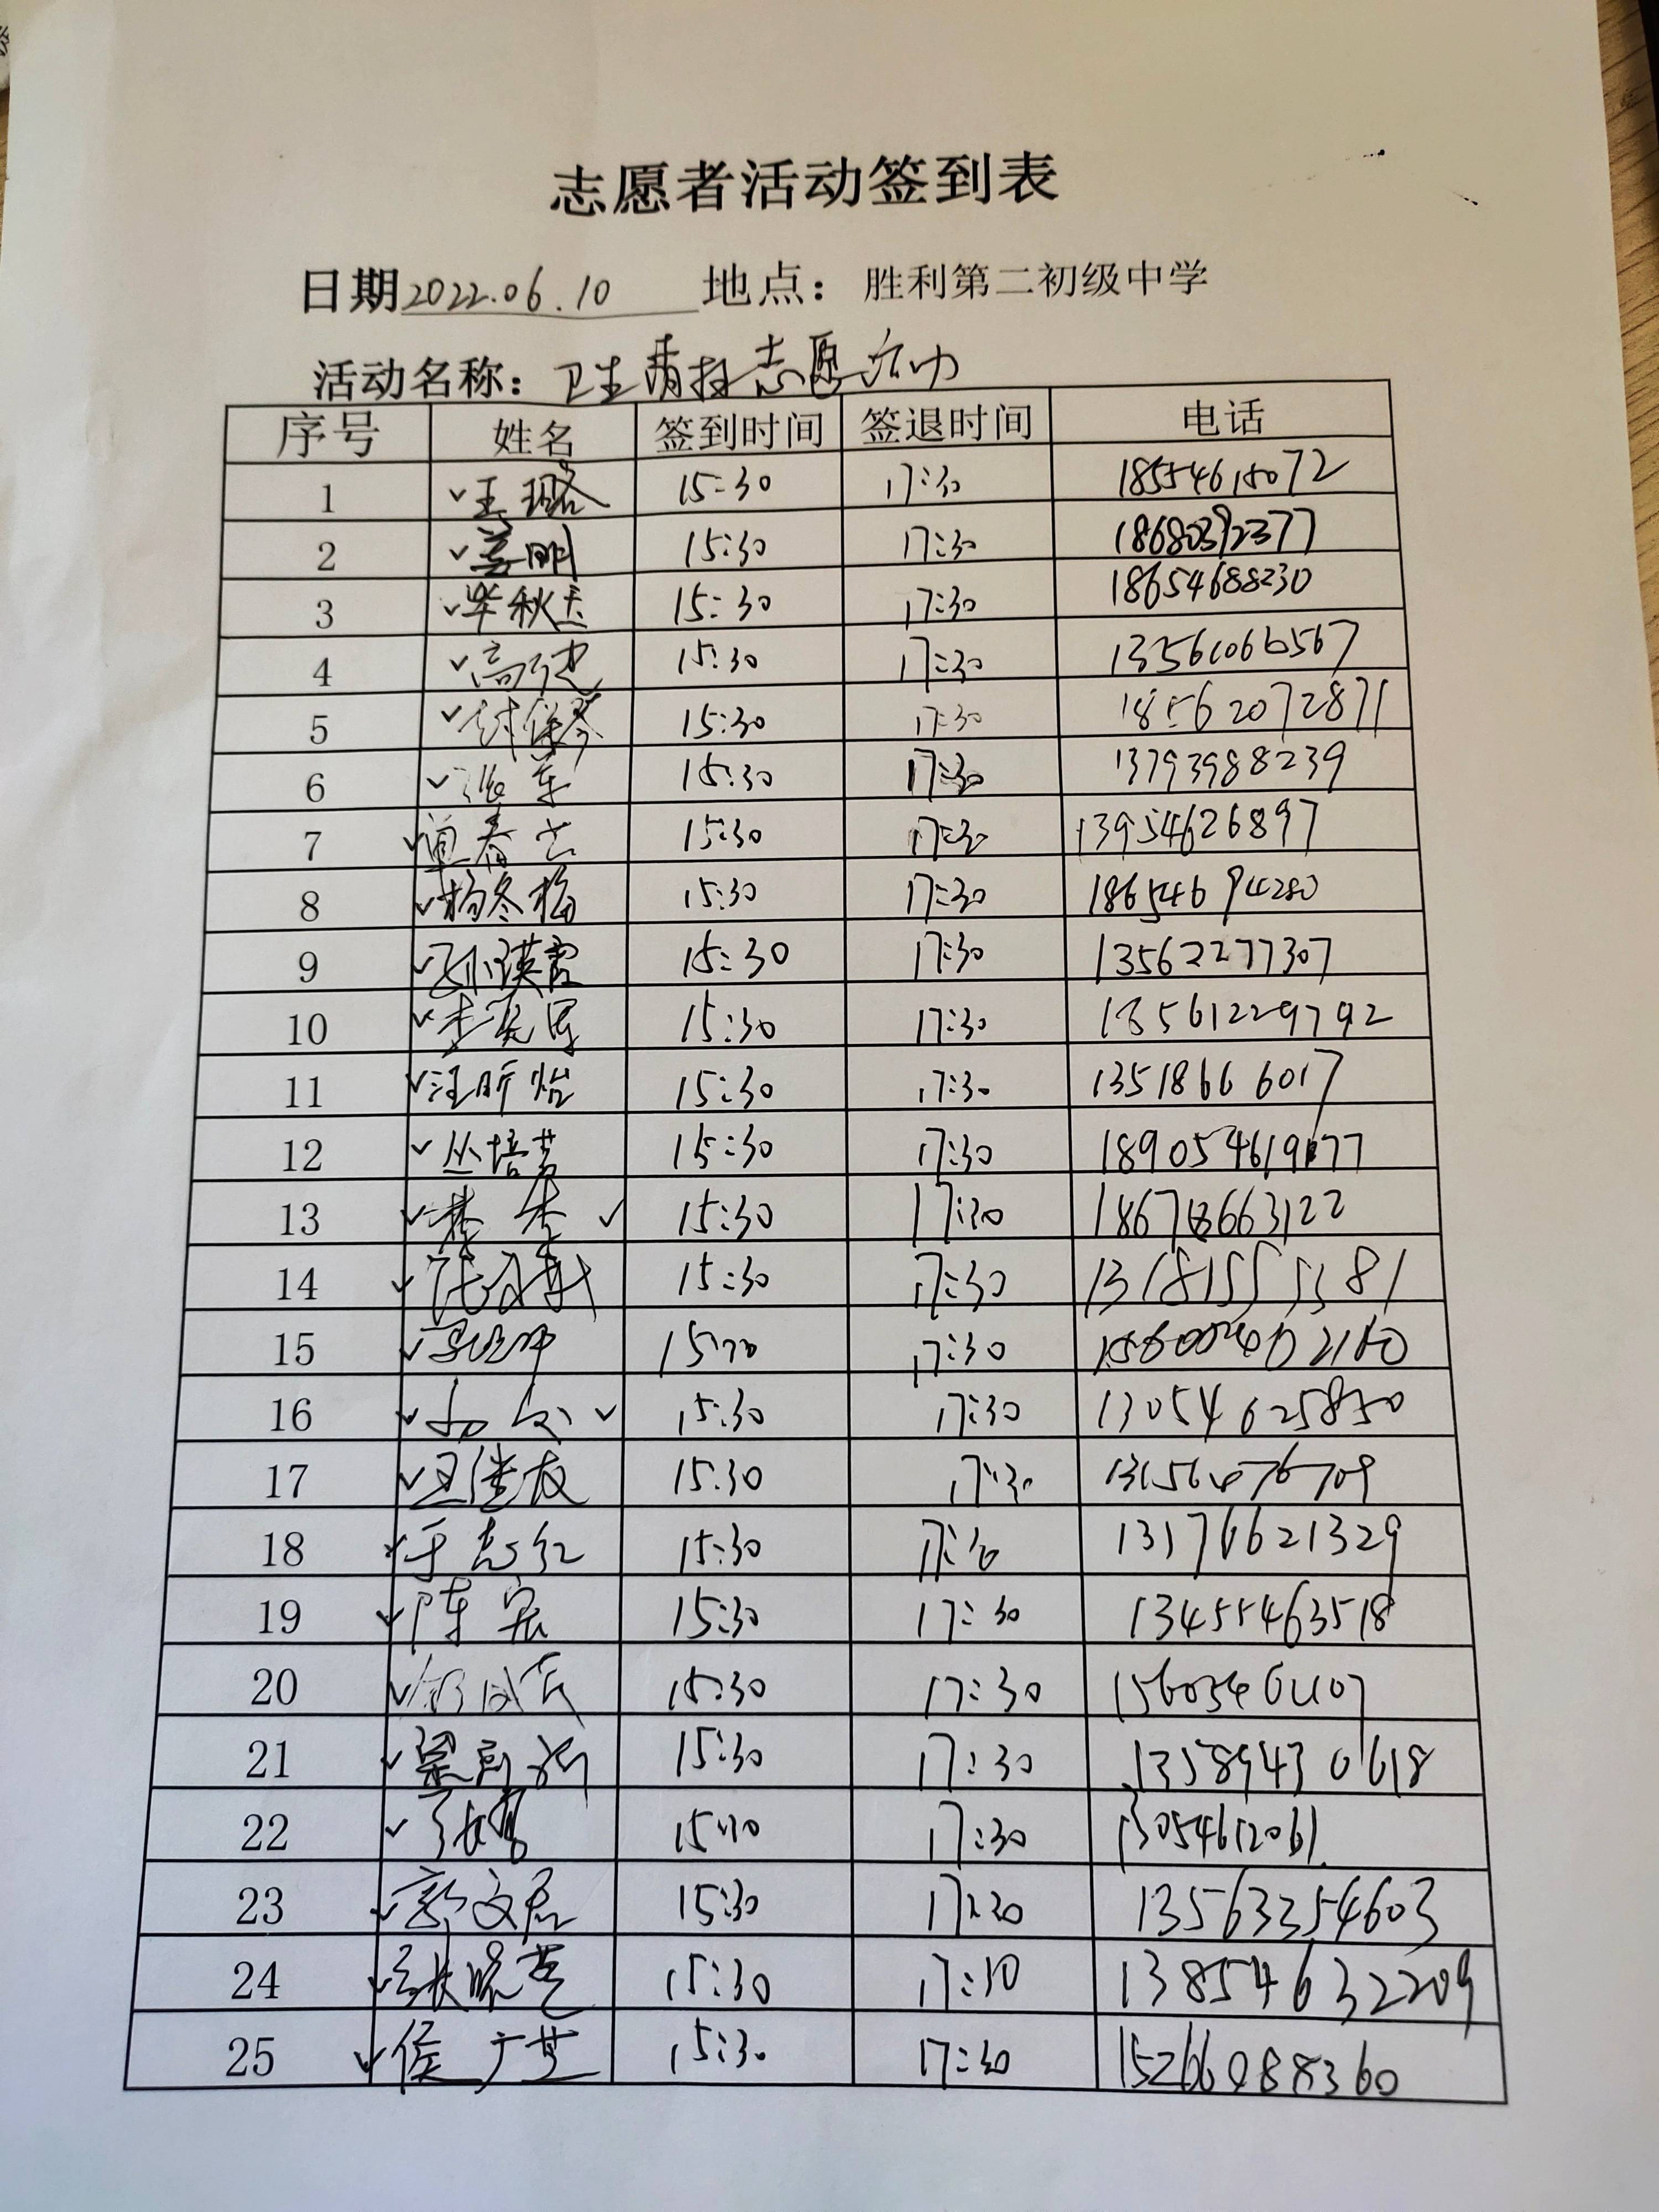 志愿者活动签到表
日期2022.06.10 地点：胜利第二初级中学
活动名称：卫生清扫志愿活动
序号 姓名 签到时间 签退时间 电话
1 王璐 15:30 17:30 18554615072
2 姜明 15:30 17:30 18680392377
3 毕秋玉 15:30 17:30 18654688230
4 15:30 17:30 13561066567
5 15:30 17:30 18562072871
6 15:30 17:30 13793988239
7 单春 15:30 17:30 13954626897
8 杨冬梅 15:30 17:30 18654694280
9 孙瑛霞 15:30 17:30 13562277307
10 15:30 17:30 18561229792
11 汪昕怡 15:30 17:30 13518666017
12 丛培芳 15:30 17:30
13 15:30 17:30 18678663122
14 15:30 17:30 13181555381
15 15:30 17:30
16 15:30 17:30 13054625850
17 15:30 17:30
18 于志红 15:30 17:30 13176621329
19 陈宏 15:30 17:30 13455463518
20 15:30 17:30
21 15:30 17:30 13589430618
22 15:30 17:30 13054612061
23 郭文君 15:30 17:30 13563354603
24 张晓芝 15:30 17:30 13854632209
25 侯广芝 15:30 17:30 15266088360